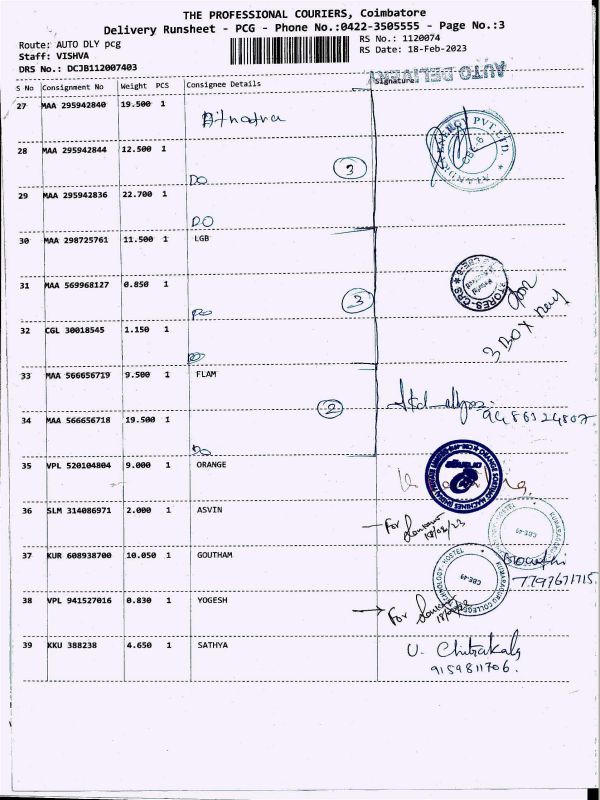 THE PROFESSIONAL COURIERS, Coimbatore
Delivery Runsheet - PCG - Phone No.:0422-3505555 - Page No.:3
Route: AUTO DLY pcg
RS No.: 1120074
Staff: VISHVA
RS Date: 18-Feb-2023
DRS No.: DCJB112007403
AUTO DELIVERY
S No Consignment No Weight PCS Consignee Details Signature
27 MAA 295942840 19.500 1
28 MAA 295942844 12.500 1 DO 3
29 MAA 295942836 22.700 1 DO
30 MAA 298725761 11.500 1 LGB
31 MAA 569968127 0.850 1 DO 3
STORES CRS
3 BOX
32 CGL 30018545 1.150 1 DO
33 MAA 566656719 9.500 1 FLAM 2
9486324807
34 MAA 566656718 19.500 1 DO
35 VPL 520104804 9.000 1 ORANGE
36 SLM 314086971 2.000 1 ASVIN
For
18/02/23
37 KUR 608938700 10.050 1 GOUTHAM
CBE-49
7797671715
38 VPL 941527016 0.830 1 YOGESH
For
39 KKU 388238 4.650 1 SATHYA
U. Chitrakala
9159811706.